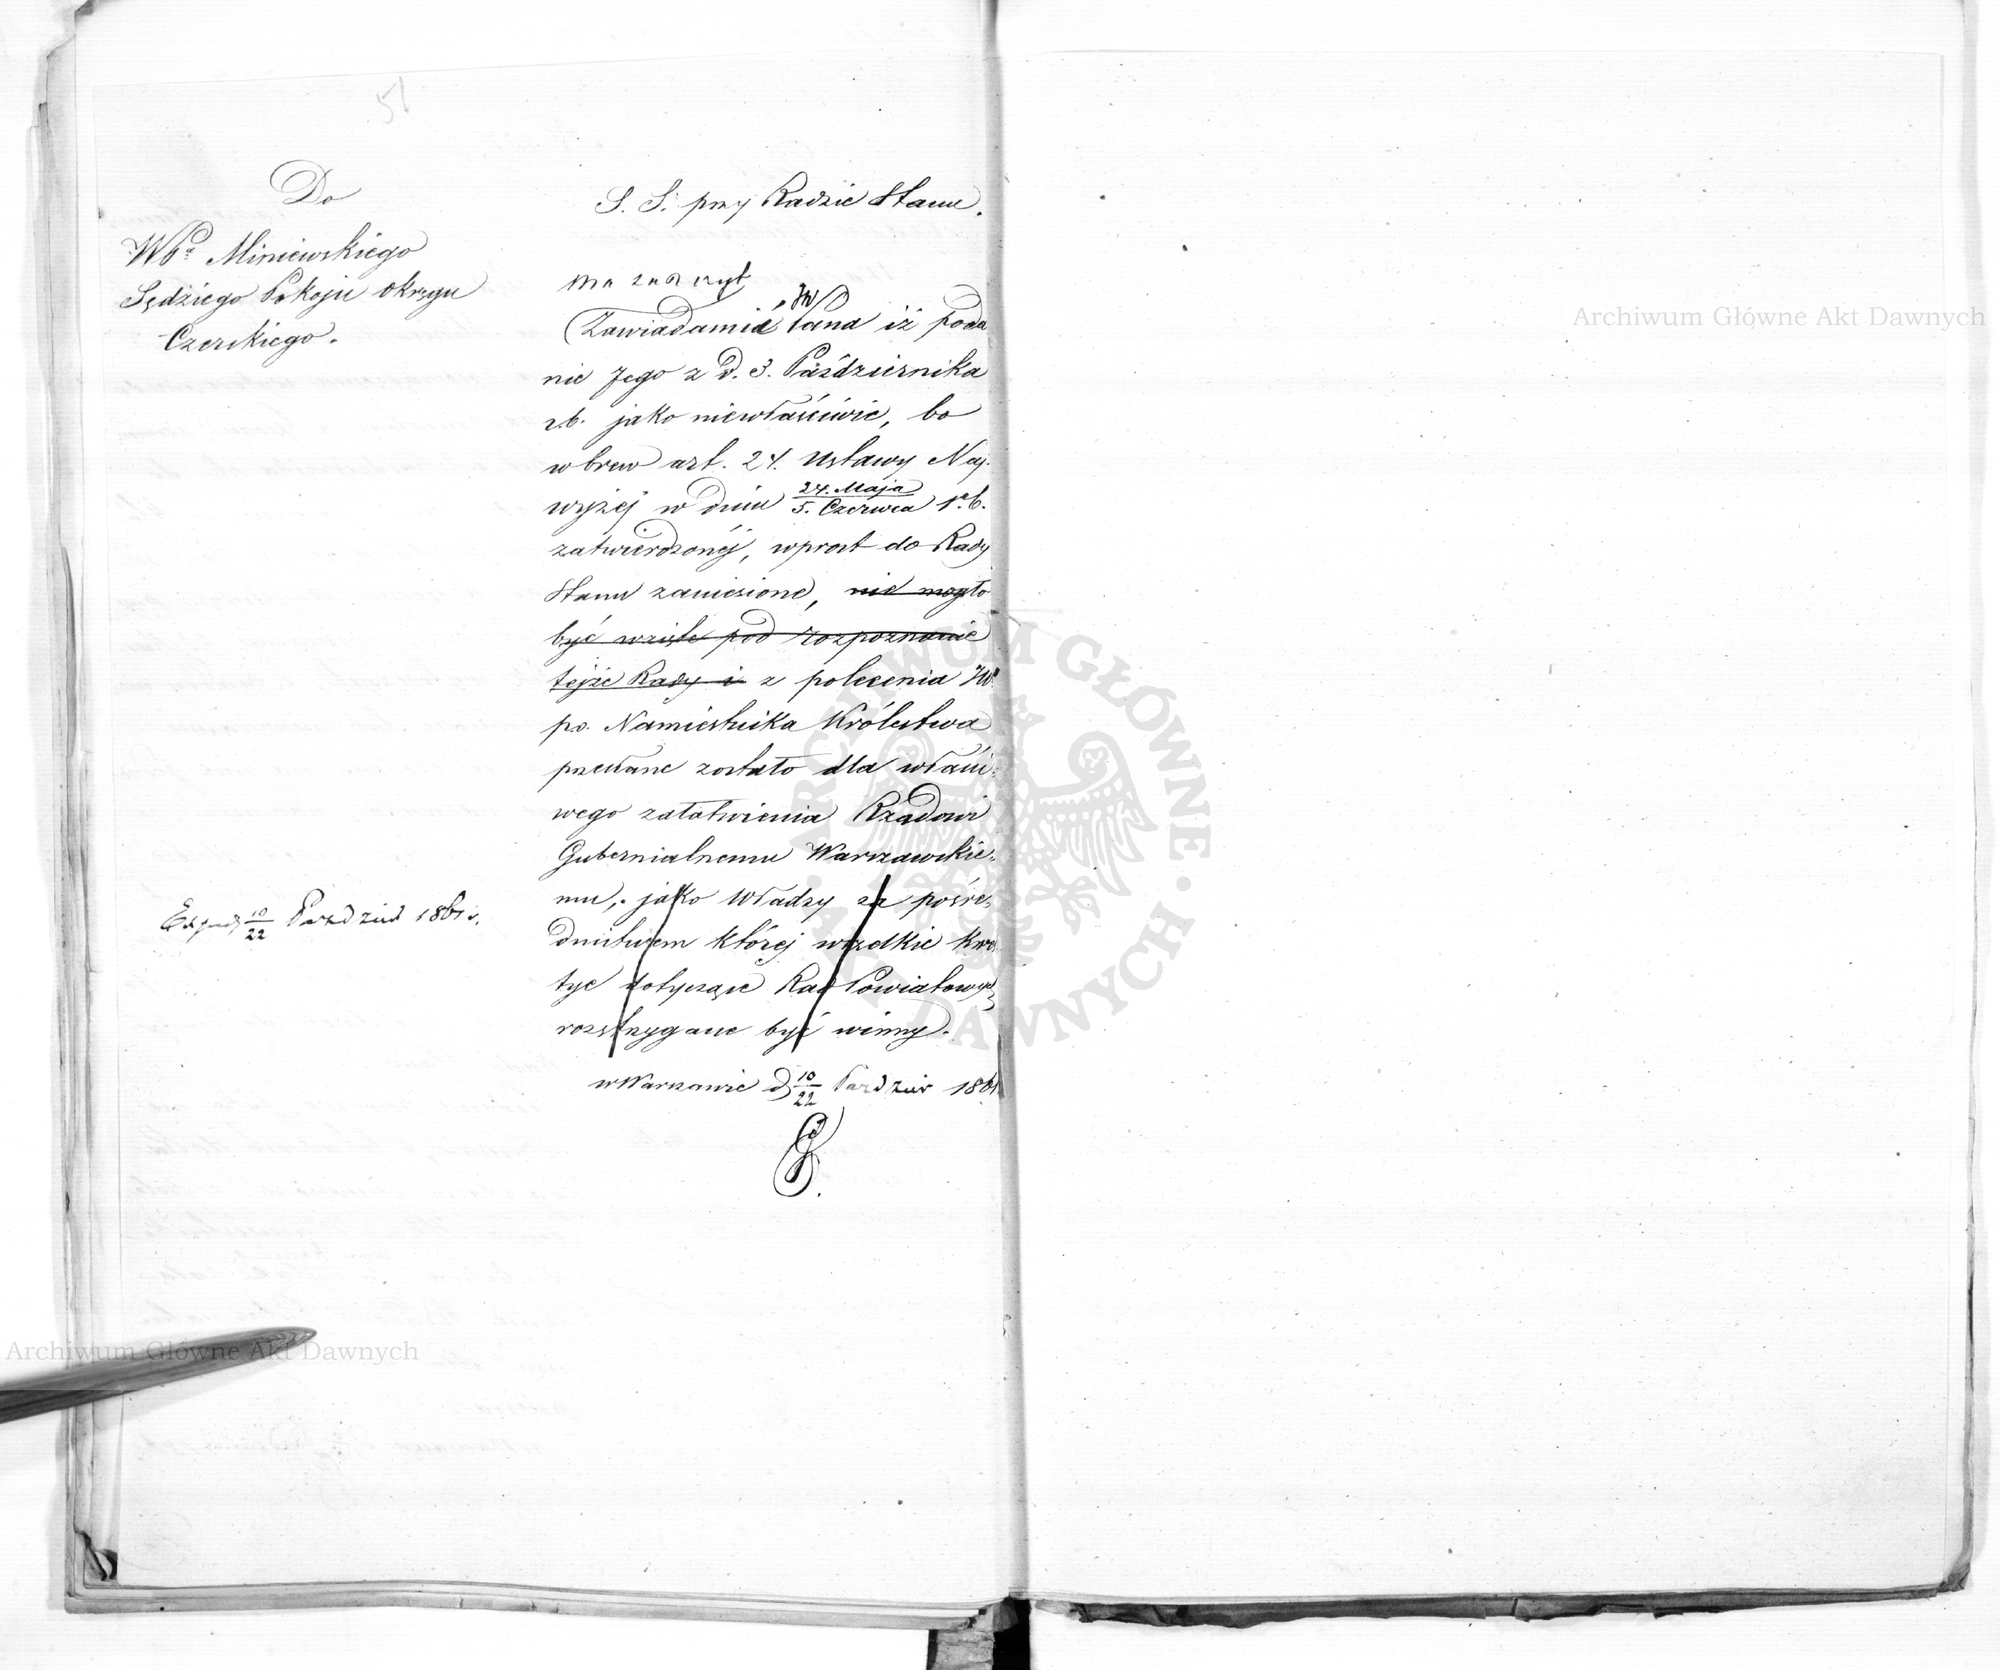 51
Do
WPa Miniewskiego
Sędziego Pokoju okręgu
Czerskiego.
S. S. przy Radzie Stanu.
ma zaszczyt
JW
Zawiadamić Pana iż poda
nie Jego z d. 3. Października
r.b. jako niewłaściwie, bo
wbrew art. 24. Ustawy Naj-
wyżej w dniu 24. Maja/5. Czerwca r.b.
zatwierdzonéj, wprost do Rady
Stanu zaniesione, nie mogło
być wzięte pod rozpoznanie
tejże Rady i z polecenia JW
p.o. Namiestnika Królestwa
przesłane zostało dla właści-
wego załatwienia Rządowi
Gubernialnemu Warszawskie-
mu, jako Władzy za pośre-
dnictwem której wszelkie kwe
tye dotyczące Rad Powiatowych
rozstrzygane być winny.
Exped 10/22 Paździer 1861 r.
w Warszawie d 10/22 Paździer 1861
Archiwum Główne Akt Dawnych
Archiwum Główne Akt Dawnych
ARCHIWUM GŁÓWNE AKT DAWNYCH